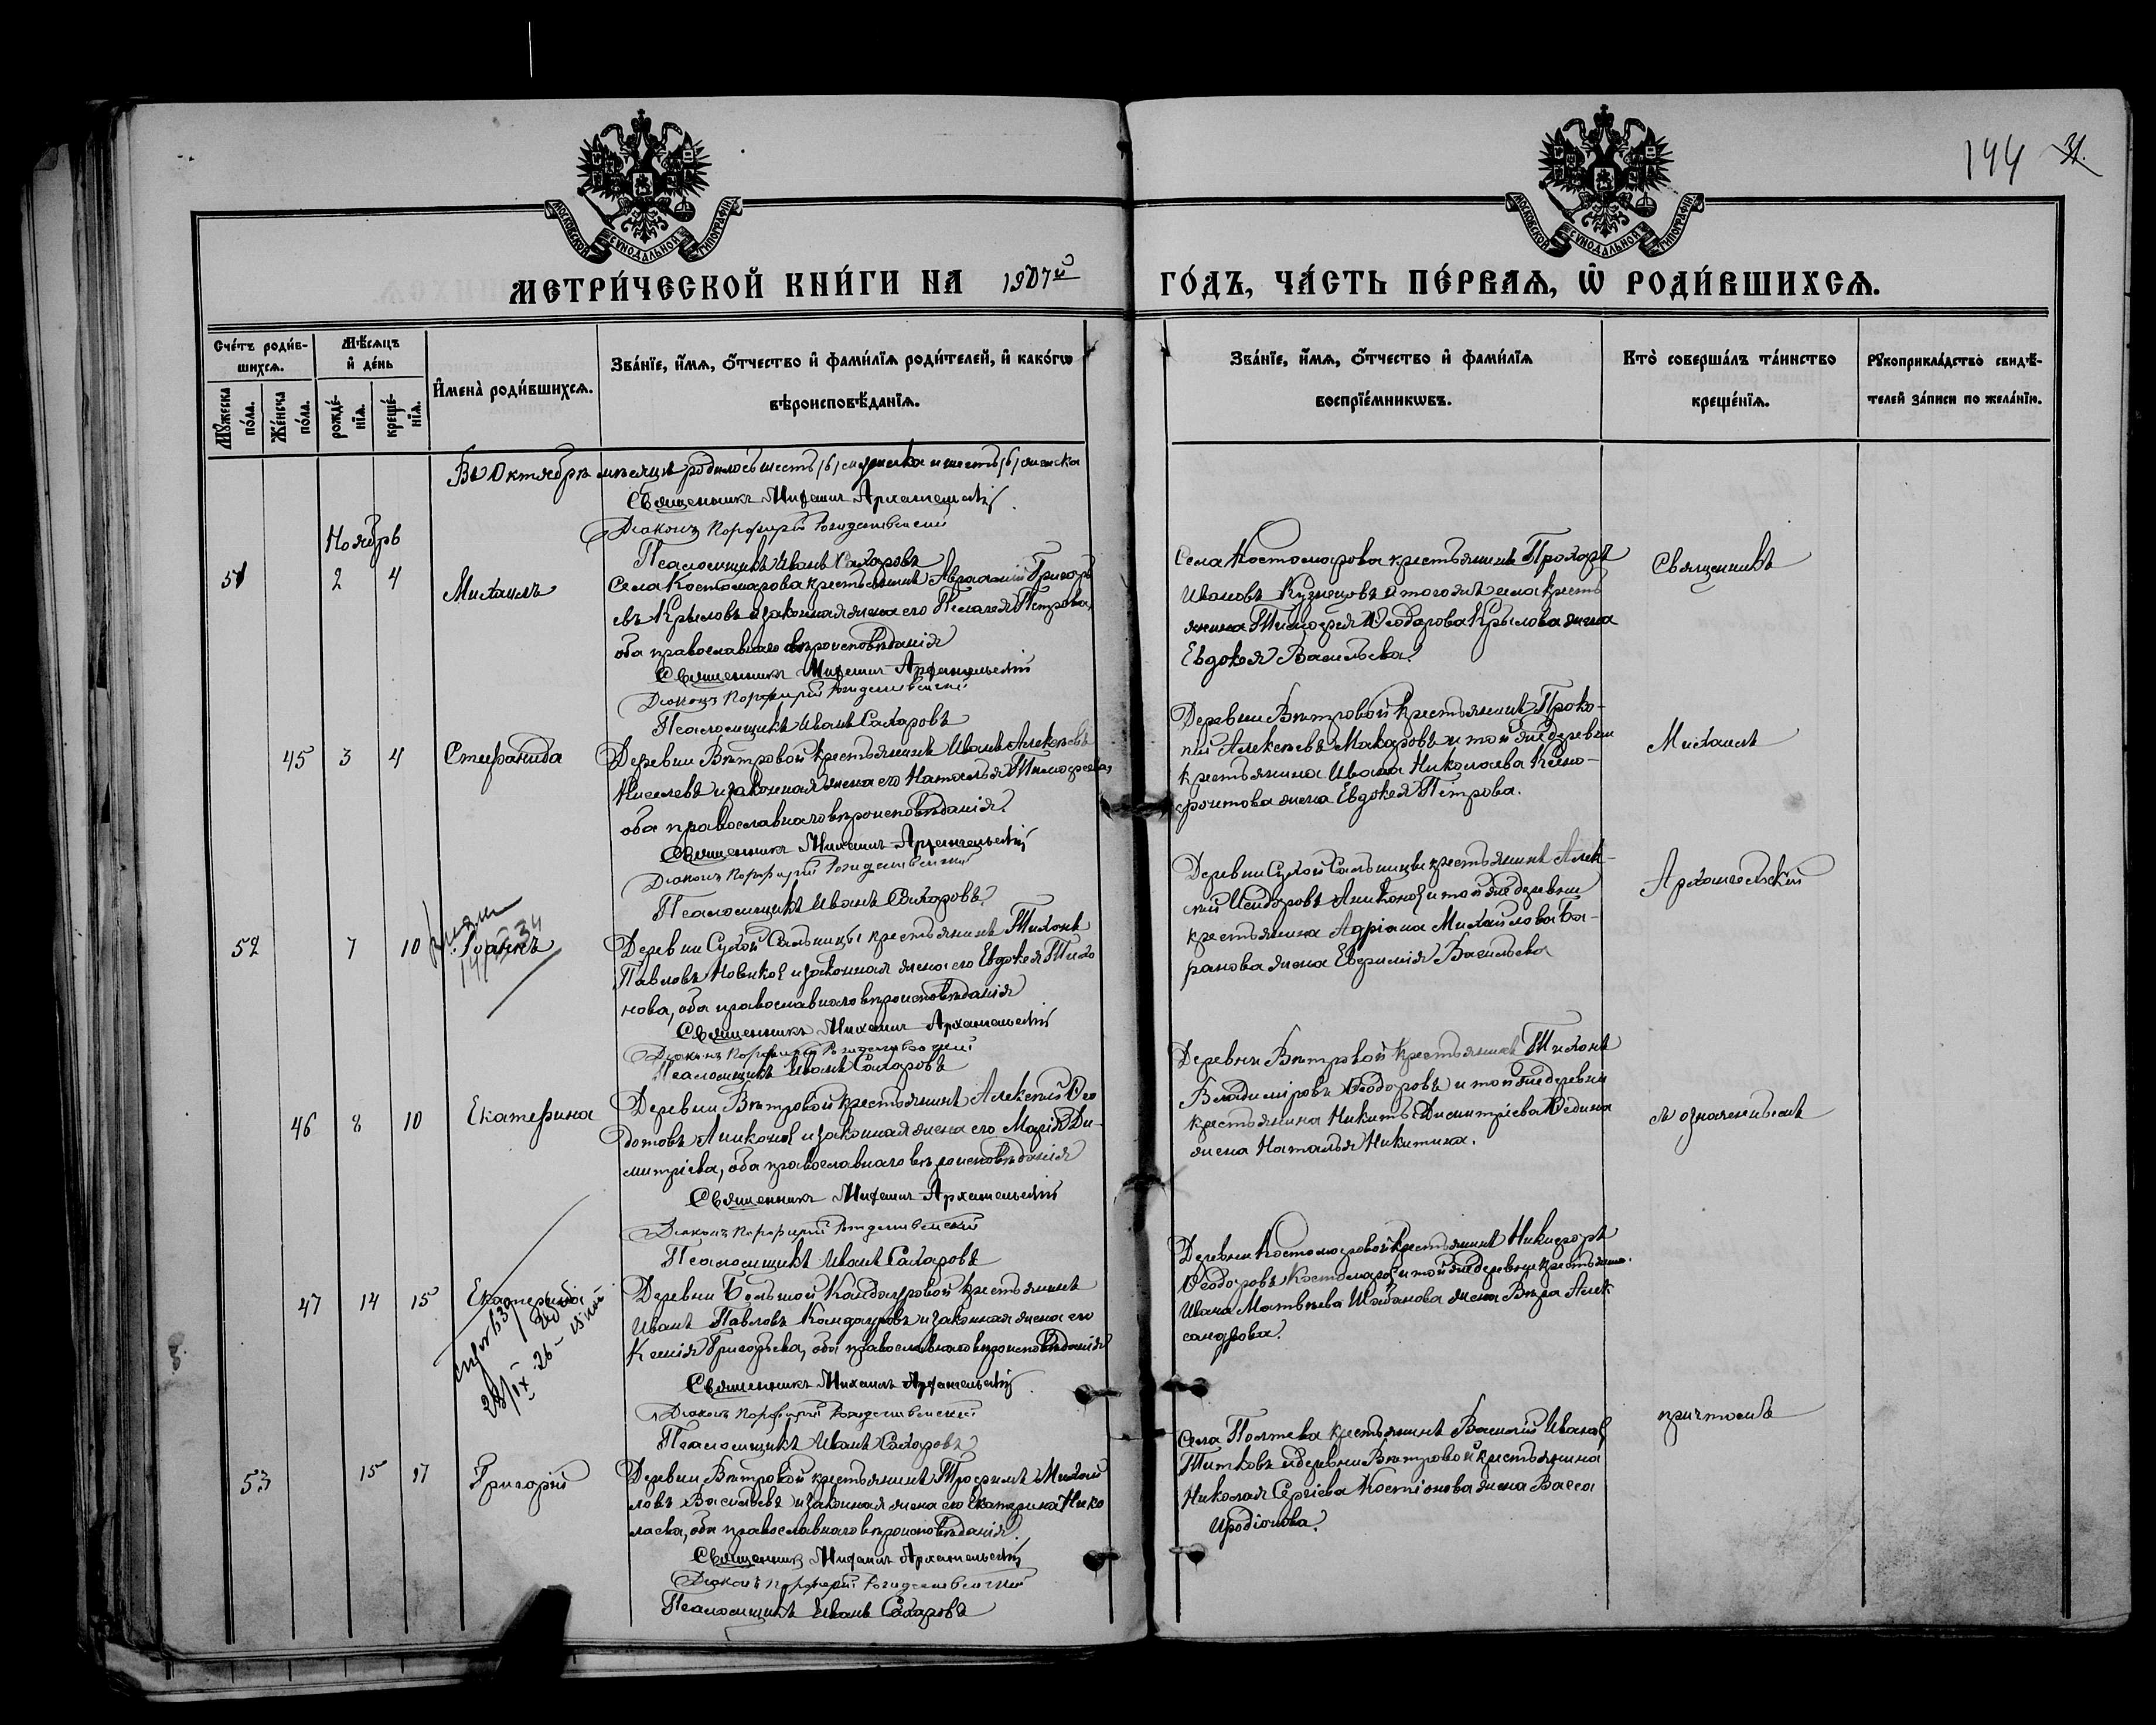 144 31.
МОСКОВСКОЙ СѴНОДАЛЬНОЙ ТИПОГРАФІИ
МОСКОВСКОЙ СѴНОДАЛЬНОЙ ТИПОГРАФІИ
МЕТРИ́ЧЕСКОЙ КНИ́ГИ НА 1907й ГО́ДЪ, ЧА́СТЬ ПЕ́РВАѦ, Ѡ҆ РОДИ́ВШИХСѦ.
Сче́тъ роди́в-
шихсѧ.
Мꙋ́жеска по́ла.
Же́нска по́ла.
Мѣ́сѧцъ
и҆ де́нь
рожде́-
нїѧ.
креще́-
нїѧ.
И҆мена̀ роди́вшихсѧ.
Зва́нїе, и҆́мѧ, ѻ҆́тчество и҆ фами́лїѧ роди́телей, и҆ како́гѡ
вѣроисповѣ́данїѧ.
Зва́нїе, и҆́мѧ, ѻ҆́тчество и҆ фами́лїѧ
воспрїе́мникѡвъ.
Кто̀ соверша́лъ та́инство
креще́нїѧ.
Рꙋкоприкла́дство свидѣ́-
телей за́писи по жела́нїю.
Въ Октябрѣ мѣсяцѣ родилось шесть (6) мужеска и шесть (6) женска
Священникъ Михаилъ Архангельскій
Діаконъ Порфирій Рождественскій
Псаломщикъ Иванъ Сахаровъ
Ноябрь
51 2 4 Михаилъ
Села Костомарова крестьянинъ Авраамій Григорь
евъ Крыловъ и законная жена его Пелагея Петрова,
оба православнаго вѣроисповѣданія
Священникъ Михаилъ Архангельскій
Діаконъ Порфирій Рождественскій
Псаломщикъ Иванъ Сахаровъ
Села Костомарова крестьянинъ Прохоръ
Ивановъ Кузнецовъ и того же села кресть
янина Тимофея Ѳеодорова Крылова жена
Евдокея Васильева.
Священникъ
45 3 4 Стефанида
Деревни Вѣтровой крестьянинъ Иванъ Алексѣевъ
Киселевъ и законная жена его Наталья Тимофеева,
оба православнаго вѣроисповѣданія.
Священникъ Михаилъ Архангельскій
Діаконъ Порфирій Рождественскій
Псаломщикъ Иванъ Сахаровъ
Деревни Вѣтровой крестьянинъ Проко-
пій Алексѣевъ Макаровъ и той же деревни
крестьянина Ивана Николаева Ксено-
фонтова жена Евдокея Петрова.
Михаилъ
52 7 10 Іоаннъ
Деревни Сухой Сальницы крестьянинъ Тихонъ
Павловъ Новиковъ и законная жена его Евдокея Тихо
нова, оба православнаго вѣроисповѣданія
Священникъ Михаилъ Архангельскій
Діаконъ Порфирій Рождественскій
Псаломщикъ Иванъ Сахаровъ
Деревни Сухой Сальницы крестьянинъ Алек-
сѣй Исидоровъ Аниконовъ и той же деревни
крестьянина Адріана Михайлова Ба-
ранова жена Евфимія Васильева
Архангельскій
46 8 10 Екатерина
Деревни Вѣтровой крестьянинъ Алексѣй Ѳео
дотовъ Аниконовъ и законная жена его Марія Ди-
митріева, оба православнаго вѣроисповѣданія
Священникъ Михаилъ Архангельскій
Діаконъ Порфирій Рождественскій
Псаломщикъ Иванъ Сахаровъ
Деревни Вѣтровой крестьянинъ Тихонъ
Владиміровъ Ѳеодоровъ и той же деревни
крестьянина Никиты Димитріева Юдина
жена Наталья Никитина.
съ означеннымъ
47 14 15 Екатерина
28/IX-26
Деревни Большой Кандауровой крестьянинъ
Иванъ Павловъ Кандауровъ и законная жена его
Ксенія Григорьева, оба православнаго вѣроисповѣданія
Священникъ Михаилъ Архангельскій
Діаконъ Порфирій Рождественскій
Псаломщикъ Иванъ Сахаровъ
Деревни Костомаровой крестьянинъ Никифоръ
Ѳеодоровъ Костомаровъ и той же деревни крестьянина
Ивана Матвѣева жена Вѣра Алек
сандрова.
причтомъ
53 15 17 Григорій
Деревни Вѣтровой крестьянинъ Трофимъ Михай
ловъ Васильевъ и законная жена его Екатерина Нико
лаева, оба православнаго вѣроисповѣданія.
Священникъ Михаилъ Архангельскій
Діаконъ Порфирій Рождественскій
Псаломщикъ Иванъ Сахаровъ
Села Полтева крестьянинъ Василій Ивановъ
Титковъ и деревни Вѣтровой крестьянина
Николая Сергіева жена Васса
Иродіонова.